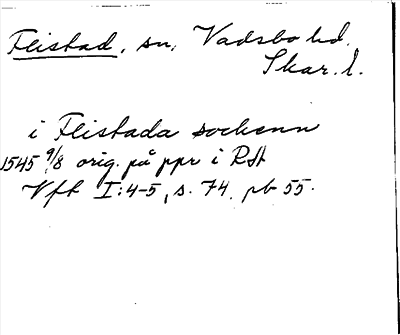 Flistad, sn, Vadsbo hd,
Skar. l.
i Flistada sockenn
1545 9/8 orig. på ppr i RA
Vft I:4-5, s. 74. pb 55.